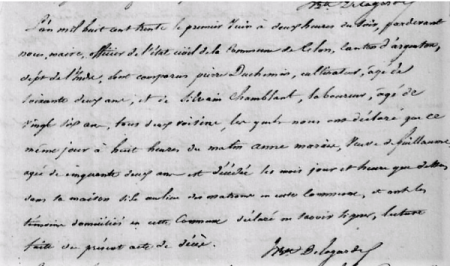 L'an mil huit cent trente le premier Juin à deux heures du soir, pardevant
nous, maire, officier de l'état civil de la Commune de Celon, canton d'argenton,
dépt de l'Indre, sont comparus pierre Duchemin, cultivateur, agé de
soixante deux ans, et de Silvain Chamblant, laboureur, agé de
vingt six ans, tous deux voisins, les quels nous ont déclaré que ce
même jour à huit heures du matin anne marie, Veuve de Guillaume
agée de cinquante deux ans est décédée les mois jour et heure que dessus
dans sa maison en cette Commune, et ont les
témoins domiciliés en cette Commune déclaré ne savoir signer, lecture
faite du présent acte de décès.
Delagarde